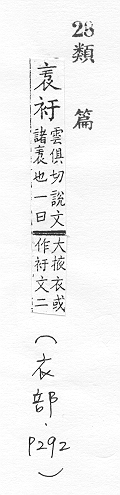 28
類篇
衧
雲俱切說文
諸也一曰
大掖衣或
作衧文二
(衣部.P292)